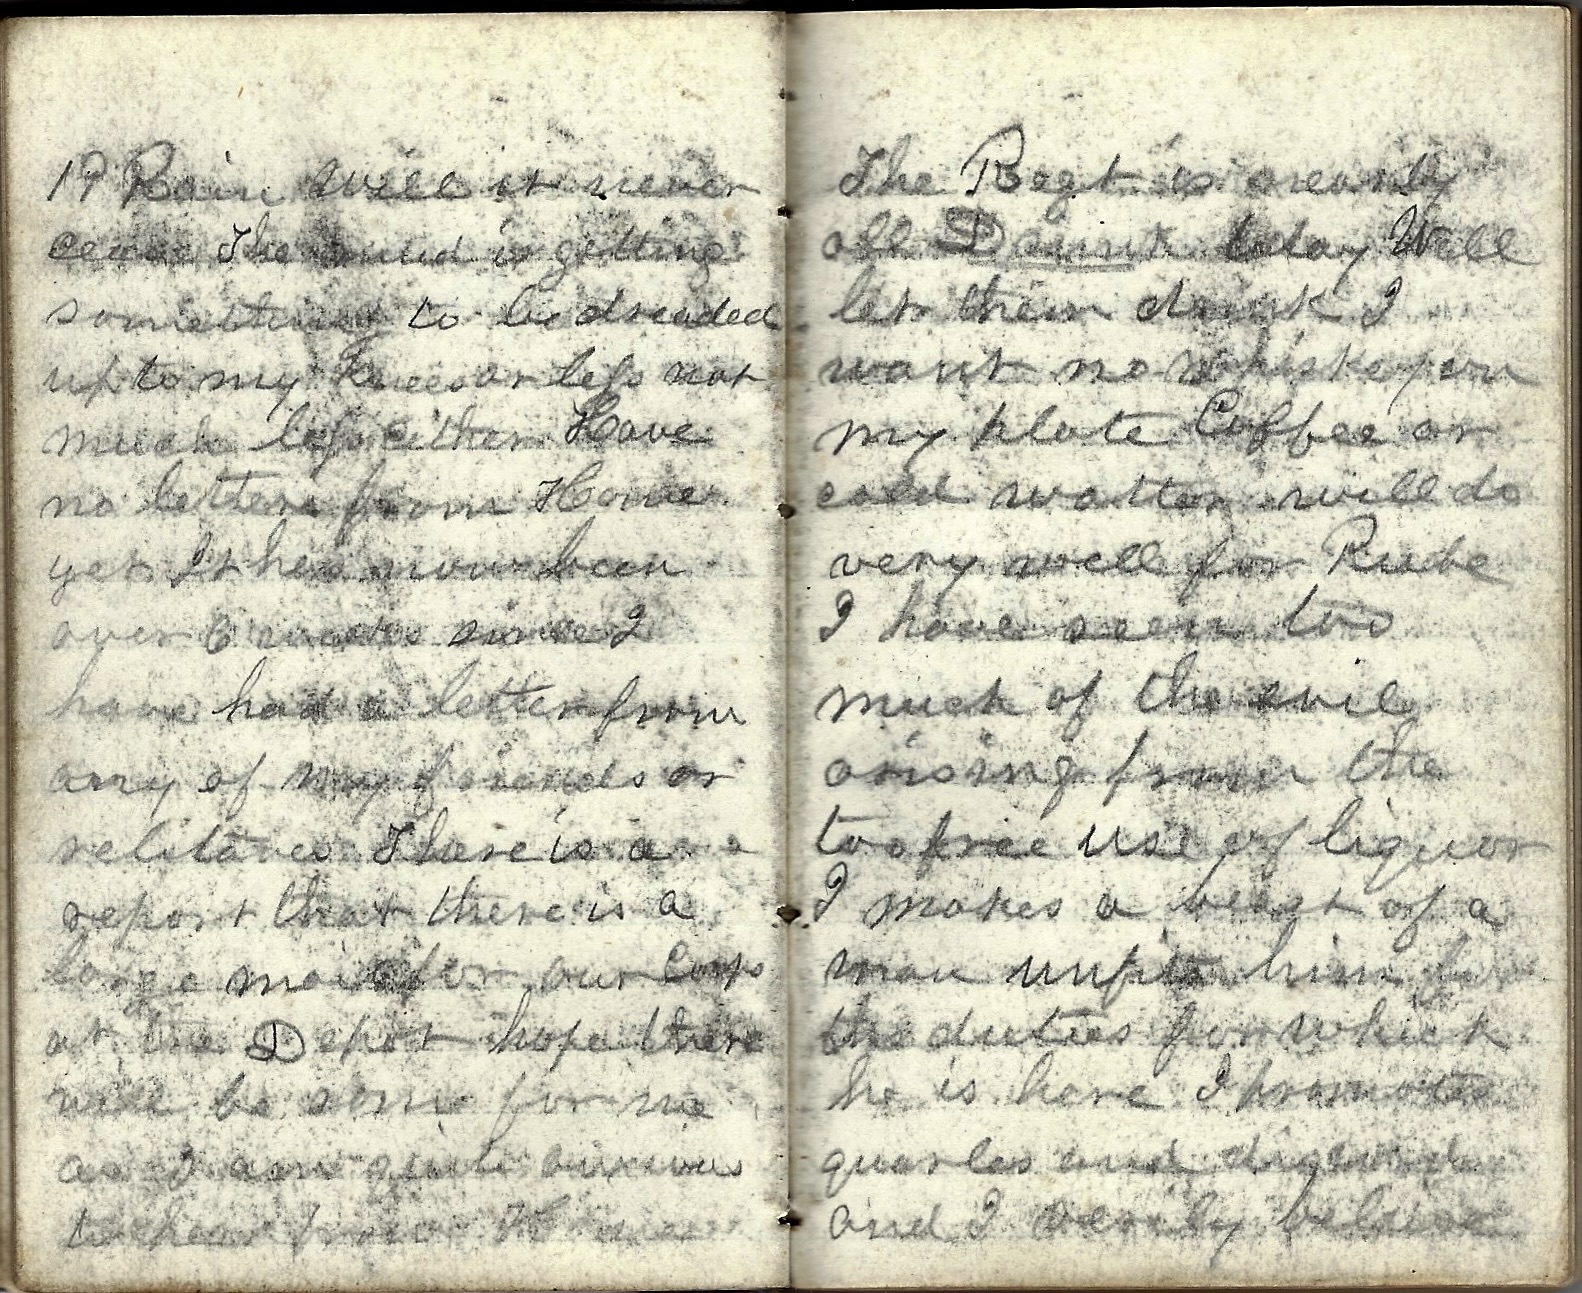 19 Rain Will it never
cease The mud is getting
something to be dreaded
up to my knees or less not
much less either Have
no letters from Home
yet It has now been
over 6 weeks since I
have had a letter from
any of my friends or
relitaves There is a
report that there is a
large mail for our Corps
at the Depot hope there
will be some for me
as I am quite anxious
to hear from Home
The Regt is nearly
all Drunk today Well
let them drink I
want no whiskey in
my plate Coffee or
cold watter will do
very well for Rube
I have seen too
much of the evil
arising from the
too free use of liquor
I makes a beast of a
man unfits him for
the duties for which
he is here I promotes
quarles and
and I verily believe